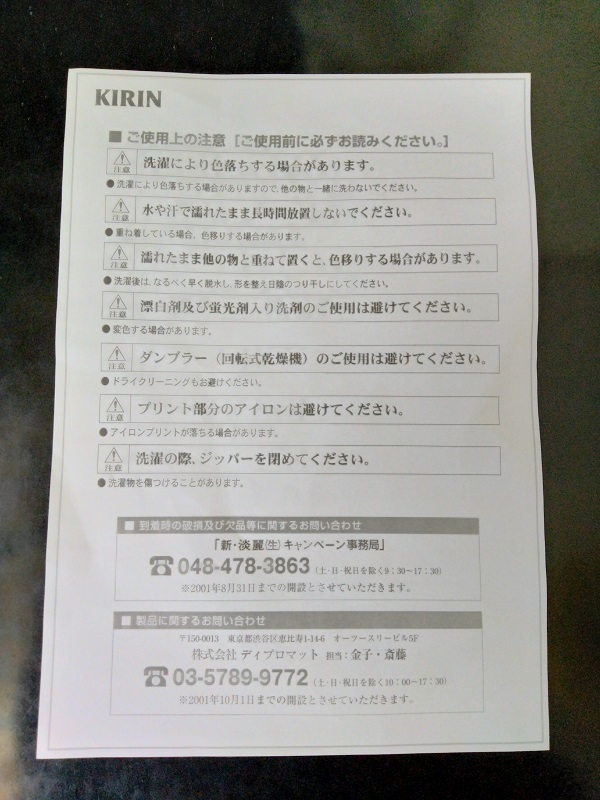 KIRIN
■ ご使用上の注意［ご使用前に必ずお読みください。］
注意 洗濯により色落ちする場合があります。
●洗濯により色落ちする場合がありますので、他の物と一緒に洗わないでください。
注意 水や汗で濡れたまま長時間放置しないでください。
●重ね着している場合、色移りする場合があります。
注意 濡れたまま他の物と重ねて置くと、色移りする場合があります。
●洗濯後は、なるべく早く脱水し、形を整え日陰のつり干しにしてください。
注意 漂白剤及び蛍光剤入り洗剤のご使用は避けてください。
●変色する場合があります。
注意 タンブラー（回転式乾燥機）のご使用は避けてください。
●ドライクリーニングもお避けください。
注意 プリント部分のアイロンは避けてください。
●アイロンプリントが落ちる場合があります。
注意 洗濯の際、ジッパーを閉めてください。
●洗濯物を傷つけることがあります。
■ 到着時の破損及び欠品等に関するお問い合わせ
「新・淡麗〈生〉キャンペーン事務局」
☎048-478-3863（土・日・祝日を除く9：30〜17：30）
※2001年8月31日までの開設とさせていただきます。
■ 製品に関するお問い合わせ
〒150-0013 東京都渋谷区恵比寿1-14-6 オーツースリービル5F
株式会社 ディプロマット 担当：金子・斎藤
☎03-5789-9772（土・日・祝日を除く10：00〜17：30）
※2001年10月1日までの開設とさせていただきます。